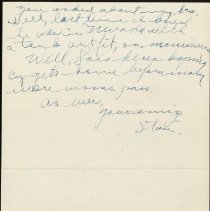 You asked about my bro.
Bill, last time I heard
he was in Nevada with
a tank outfit, on maneuvers
Well, Lois here's hoping
Cy gets home before many
more moons pass.
As ever,
Stan.